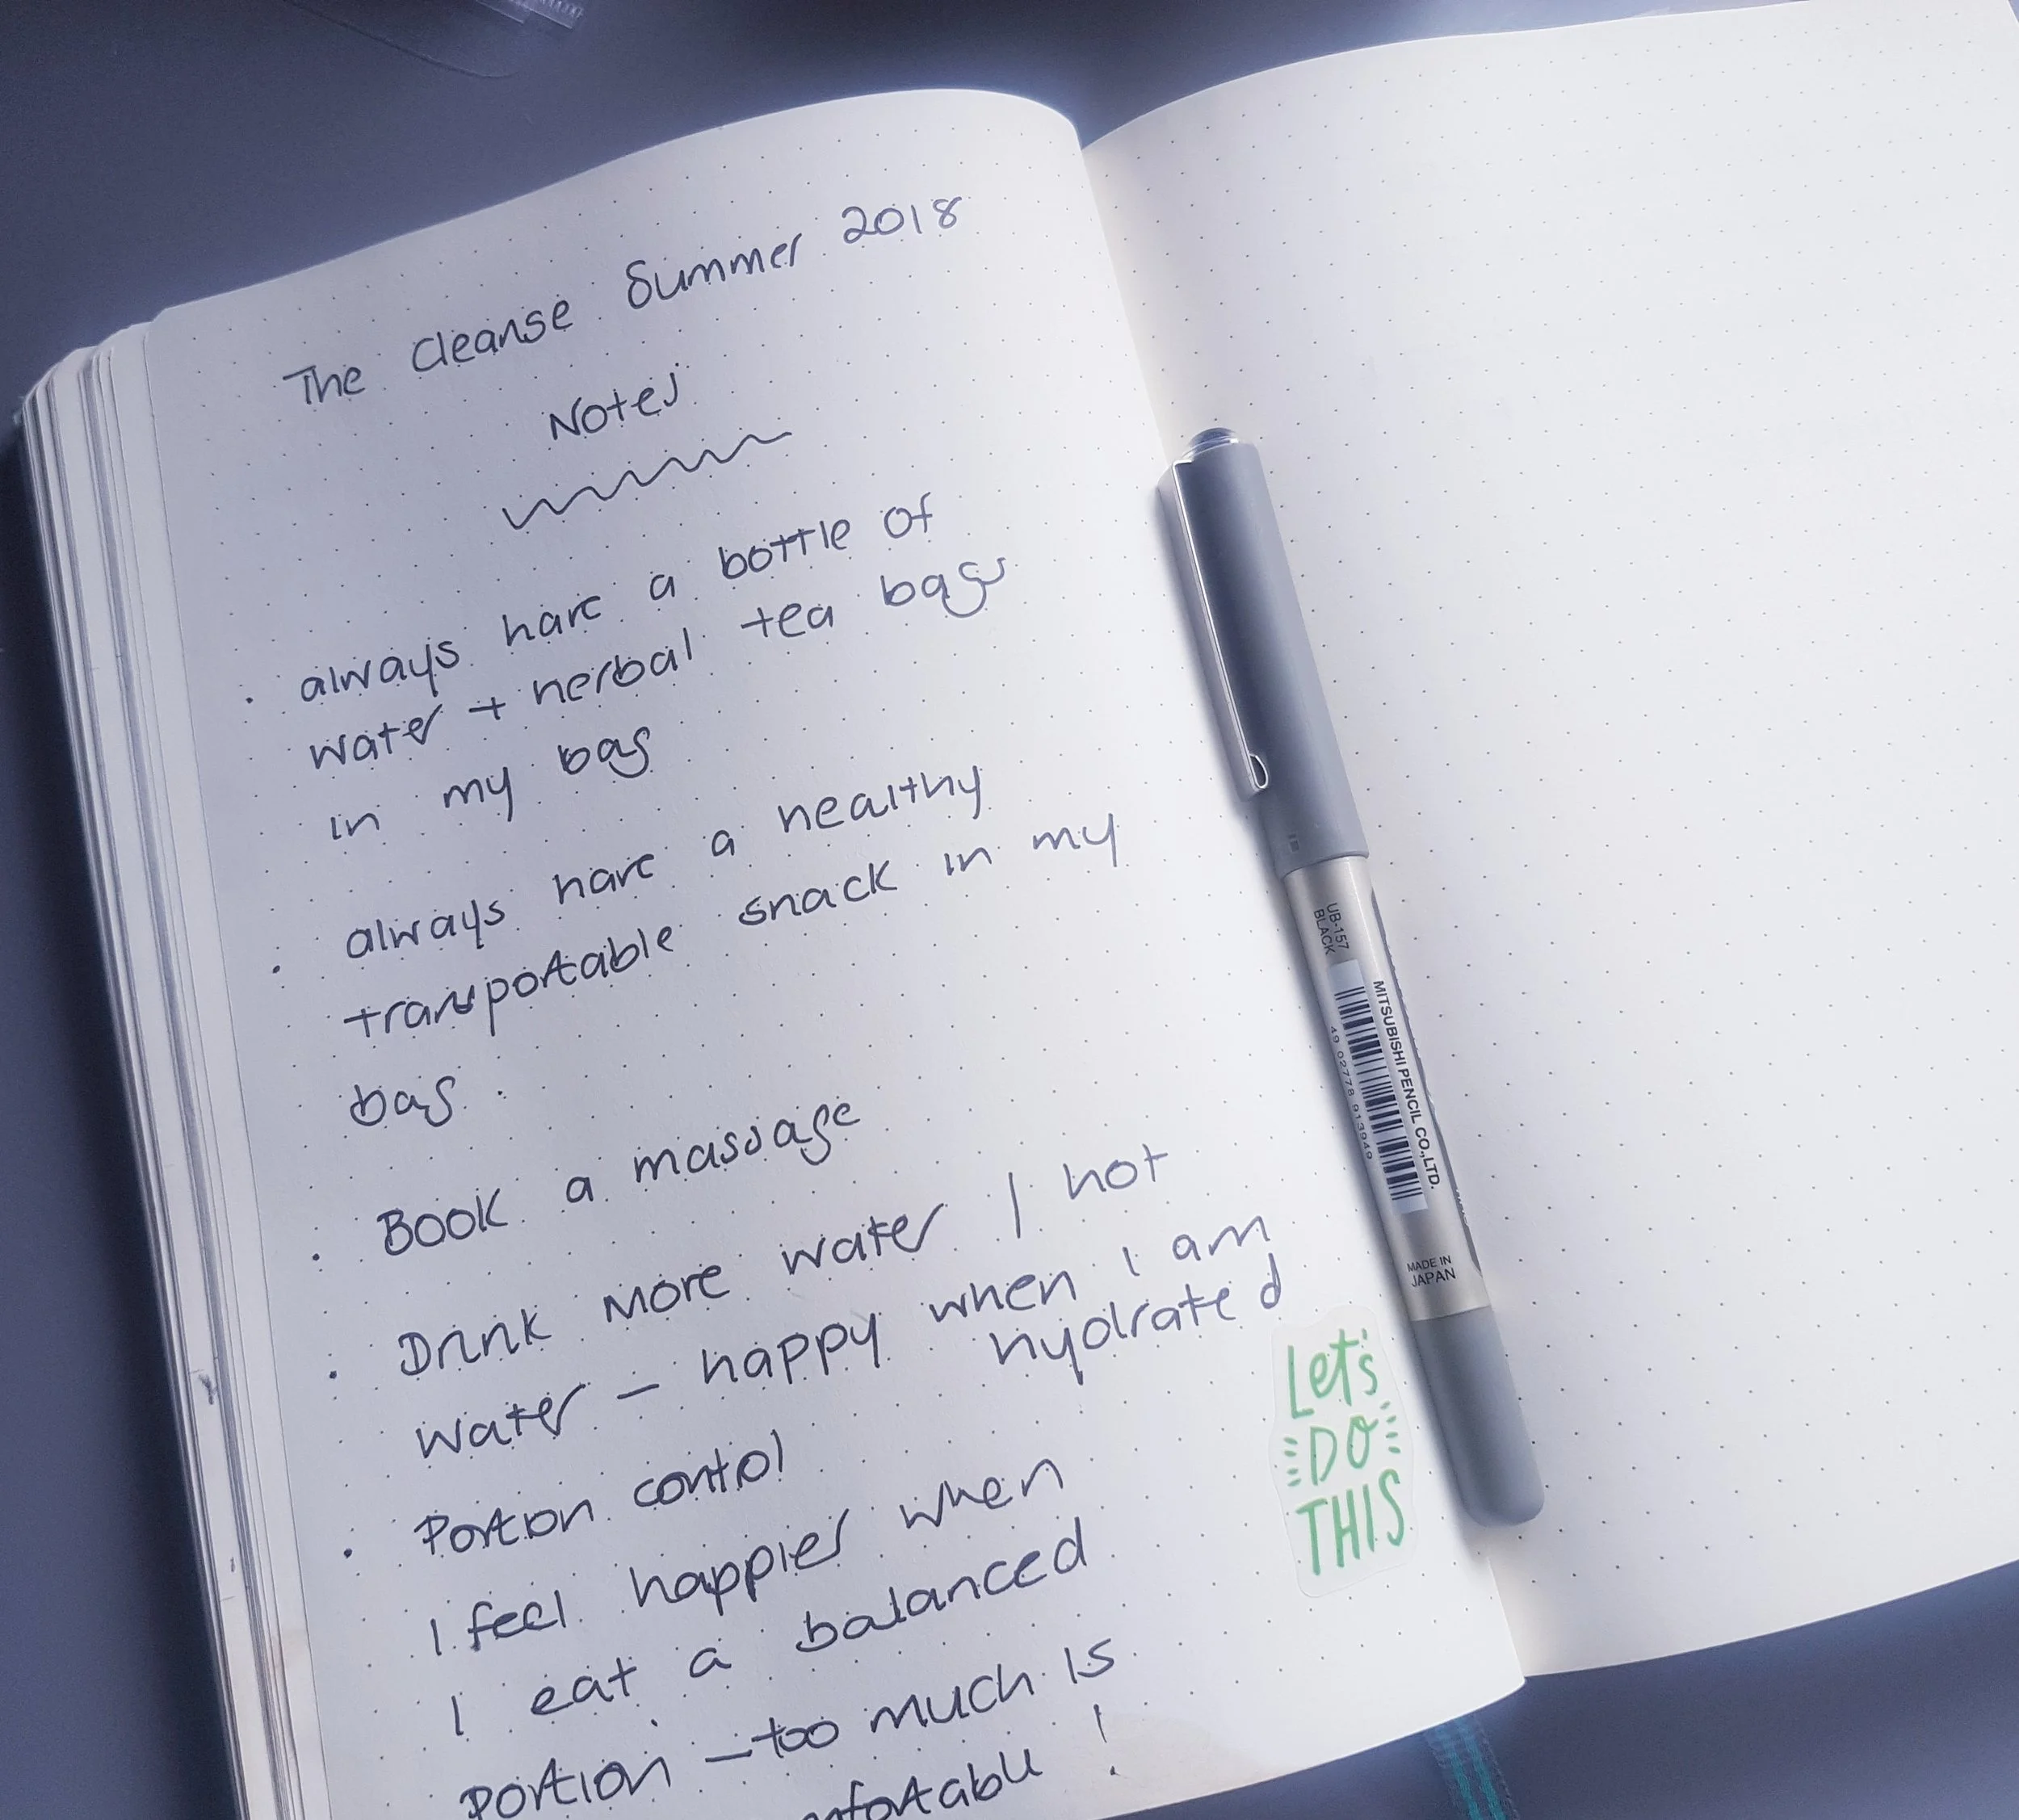 The Cleanse Summer 2018
Notes
· always have a bottle of
water + herbal tea bags
in my bag
· always have a healthy
transportable snack in my
bag.
· Book a massage
· Drink more water / hot
water – happy when I am
hydrated
· Portion control
I feel happier when
I eat a balanced
portion – too much is
!
Let's
DO
THIS
UB-157
BLACK
MITSUBISHI PENCIL CO.,LTD.
49 02778 913949
MADE IN
JAPAN